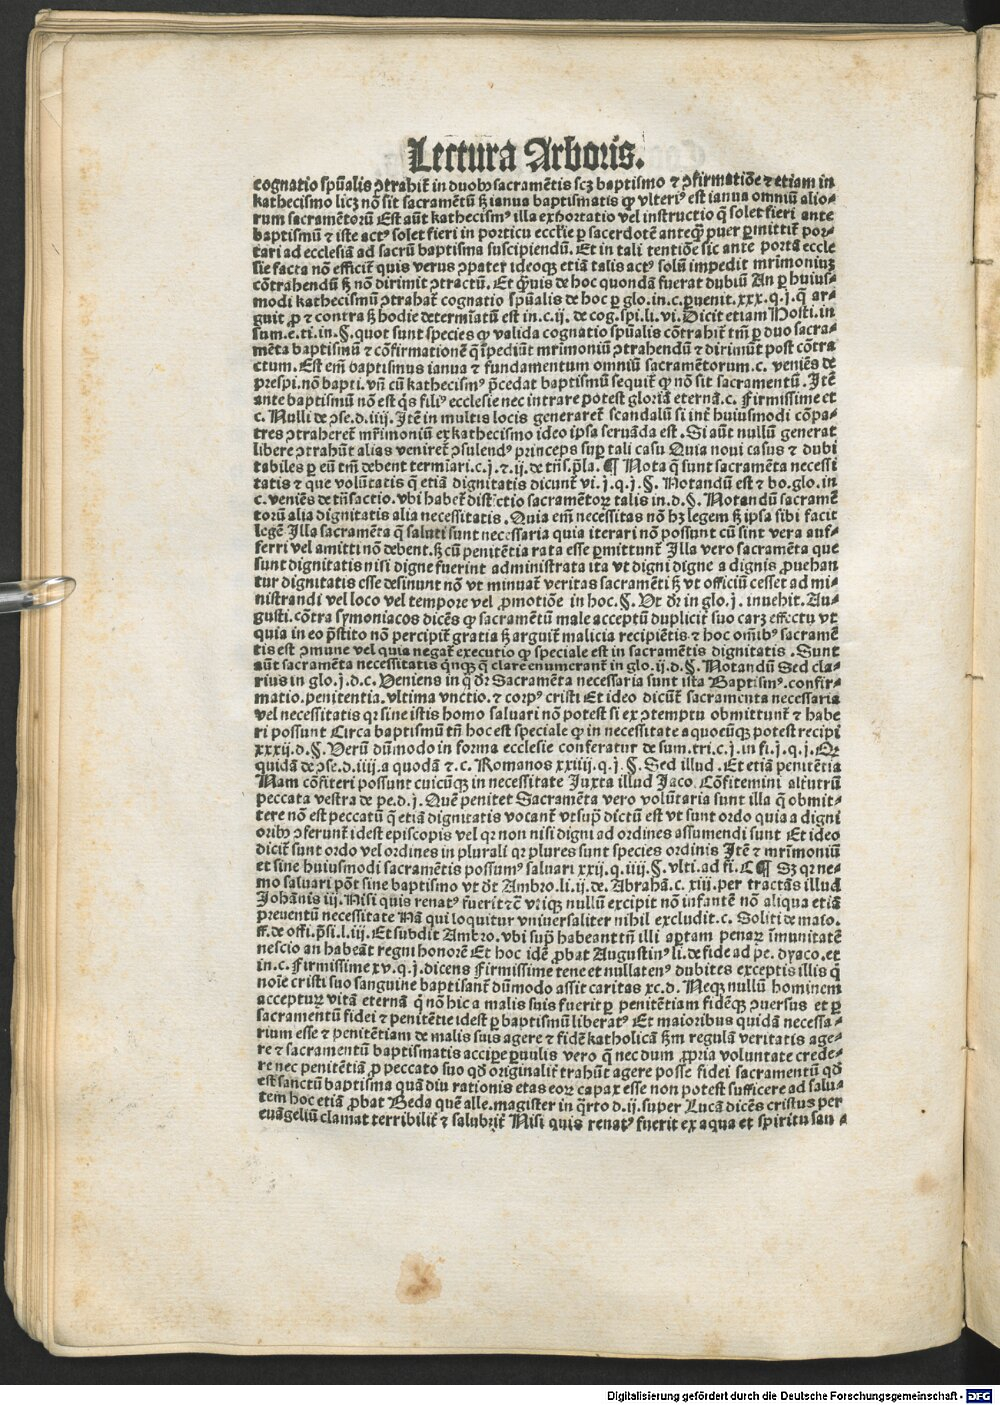 Lectura Arboris.
cognatio spũalis ꝯtrahit̃ in duobꝰ sacramẽtis scꝫ baptismo ⁊ ꝯfirmatiõe ⁊ etiam in
kathecismo licꝫ nõ sit sacramẽtũ sꝫ ianua baptismatis ꝙ vlteriꝰ est ianua omniũ alio⸗
rum sacramẽtorũ Est aũt kathecismꝰ illa exhortatio vel instructio q̃ solet fieri ante
baptismũ ⁊ iste actꝰ solet fieri in porticu ecclẽie ꝑ sacerdotẽ anteq̃ꝫ puer ꝑmittit̃ por⸗
tari ad ecclesiã ad sacrũ baptisma suscipiendũ. Et in tali tentiõe sic ante portã eccle
sie facta nõ efficit̃ quis verus ꝯpater ideoqꝫ etiã talis actꝰ solũ impedit mr̃imoniuꝫ
cõtrahendũ sꝫ nõ dirimit ꝯtractũ. Et q̃uis de hoc quondã fuerat dubiũ An ꝑ huius⸗
modi kathecismũ ꝯtrahat̃ cognatio spũalis de hoc ꝑ glo.in.c.ꝑuenit.xxx.q.j.q̃ ar⸗
guit ꝓ ⁊ contra sꝫ hodie determĩatũ est in.c.ij. de cog.spi.li.vi. Dicit etiam Hosti.in
sum.e.ti.in.§.quot sunt species ꝙ valida cognatio spũalis cõtrahit̃ tm̃ ꝑ duo sacra⸗
mẽta baptismũ ⁊ cõfirmationẽ q̃ ĩpediũt mr̃imoniũ ꝯtrahendũ ⁊ dirimũt post cõtra
ctum. Est em̃ baptismus ianua ⁊ fundamentum omniũ sacramẽtorum.c. veniẽs de
p̃respi.nõ bapti. vñ cũ kathecismꝰ p̃cedat baptismũ sequit̃ ꝙ nõ sit sacramentũ. Itẽ
ante baptismũ nõ est q̃s filiꝰ ecclesie nec intrare potest gloriã eternã.c. Firmissime et
c. Nulli de ꝯse.d.iiij. Itẽ in multis locis generaret̃ scandalũ si int̃ huiusmodi cõpa⸗
tres ꝯtraheret̃ mr̃imoniũ ex kathecismo ideo ipsa seruãda est. Si aũt nullũ generat
libere ꝯtrahũt alias veniret̃ ꝯsulendꝰ princeps suꝑ tali casu Quia noui casus ⁊ dubi
tabiles ꝑ eũ tm̃ debent termĩari.c.j.⁊.ij.de trñs.p̃la. ¶ Nota q̃ sunt sacramẽta necessi
tatis ⁊ que volũtatis q̃ etiã dignitatis dicunt̃ vi.j.q.j.§. Notandũ est ⁊ bo.glo.in
c. veniẽs de trñsactio. vbi habet̃ distĩctio sacramẽtoꝝ talis in.d.§. Notandũ sacramẽ
torũ alia dignitatis alia necessitatis. Quia em̃ necessitas nõ hꝫ legem sꝫ ipsa sibi facit
legẽ Illa sacramẽta q̃ saluti sunt necessaria quia iterari nõ possunt cũ sint vera auf⸗
ferri vel amitti nõ debent.sꝫ cũ penitẽtia rata esse ꝑmittunt̃ Illa vero sacramẽta que
sunt dignitatis nisi digne fuerint administrata ita vt digni digne a dignis ꝓuehan
tur dignitatis esse desinunt nõ vt minuat̃ veritas sacramẽti sꝫ vt officiũ cesset ad mi⸗
nistrandi vel loco vel tempore vel ꝓmotiõe in hoc.§. Vt dr̃ in glo.j. inuehit. Au⸗
gusti.cõtra symoniacos dicẽs ꝙ sacramẽtũ male acceptũ duplicit̃ suo carꝫ effectu vt
quia in eo p̃stito nõ percipit̃ gratia sꝫ arguit̃ malicia recipiẽtis ⁊ hoc oĩmbꝰ sacramẽ
tis est ꝯmune vel quia negat̃ executio ꝙ speciale est in sacramẽtis dignitatis. Sunt
aũt sacramẽta necessitatis q̃nqꝫ q̃ clare enumerant̃ in glo.ij.d.§. Notandũ Sed cla⸗
rius in glo.j.d.c. Veniens in q̃ dr̃ Sacramẽta necessaria sunt ista Baptismꝰ.confir⸗
matio.penitentia.vltima vnctio.⁊ corpꝰ cristi Et ideo dicũt̃ sacramenta necessaria
vel necessitatis qr̃ sine istis homo saluari nõ potest si ex ꝯtemptu obmittunt̃ ⁊ habe
ri possunt Circa baptismũ tñ hoc est speciale ꝙ in necessitate a quocũqꝫ potest recipi
xxxij.d.§. Verũ dũmodo in forma ecclesie conferatur de sum.tri.c.j.in fi.j.q.j. Qꝛ
quidã de ꝯse.d.iiij.a quodã ⁊.c. Romanos xxiiij.q.j.§. Sed illud. Et etiã penitẽtia
Nam cõfiteri possunt cuicũqꝫ in necessitate Juxta illud Jaco. Cõfitemini alt̃utrũ
peccata vestra de pe.d.j. Quẽ penitet Sacramẽta vero volũtaria sunt illa q̃ obmit⸗
tere nõ est peccatũ q̃ etiã dignitatis vocant̃ vt sup̃ dictũ est vt sunt ordo quia a digni
oribꝰ ꝯferunt̃ idest episcopis vel qꝛ non nisi digni ad ordines assumendi sunt Et ideo
dicit̃ sunt ordo vel ordines in plurali qꝛ plures sunt species ordinis Itẽ ⁊ mr̃imoniũ
et sine huiusmodi sacramẽtis possumꝰ saluari xxij.q.iiij.§.vlti.ad fi. C¶ Sꝫ qꝛ ne⸗
mo saluari põt sine baptismo vt dr̃t Ambro.li.ij.de.Abrahã.c.xiii.per tractãs illud
Johãnis iij. Nisi quis renatꝰ fuerit ⁊c̃ vtiqꝫ nullũ excipit nõ infantẽ nõ aliqua etiã
preuentũ necessitate Nã qui loquitur vniuersaliter nihil excludit.c. Soliti de maio.
ff.de offi.p̃si.l.iij. Et subdit Ambro. vbi sup̃ habeant tñ illi aꝑtam penaꝝ ĩmunitatẽ
nescio an habeãt regni honorẽ Et hoc idẽ ꝓbat Augustinꝰ li.de fide ad pe. dyaco.et
in.c. Firmissime xv.q.j.dicens Firmissime tene et nullatenꝰ dubites exceptis illis q̃
noĩe cristi suo sanguine baptisant̃ dũmodo assit caritas xc.d. Neqꝫ nullũ hominem
accepturꝝ vitã eternã q̃ nõ hic a malis suis fuerit ꝑ penitẽtiam fidẽqꝫ ꝯuersus et ꝑ
sacramentũ fidei ⁊ penitẽtie idest ꝑ baptismũ liberatꝰ Et maioribus quidã necessa⸗
rium esse ⁊ penitẽtiam de malis suis agere ⁊ fidẽ katholicã sꝫm regulã veritatis age⸗
re ⁊ sacramentũ baptismatis acciꝑe ꝑuulis vero q̃ nec dum ꝓpria voluntate crede⸗
re nec penitẽtiã ꝓ peccato suo qd̃ originalit̃ trahũt agere posse fidei sacramentũ qd̃
est sanctũ baptisma quã diu rationis etas eoꝝ capax esse non potest sufficere ad salu⸗
tem hoc etiã ꝓbat Beda quẽ alle.magister in q̃rto d.ij.super Lucã dicẽs cristus per
euãgeliũ clamat terribilit̃ ⁊ salubrit̃ Nisi quis renatꝰ fuerit ex aqua et spiritu san⸗
Digitalisierung gefördert durch die Deutsche Forschungsgemeinschaft - DFG